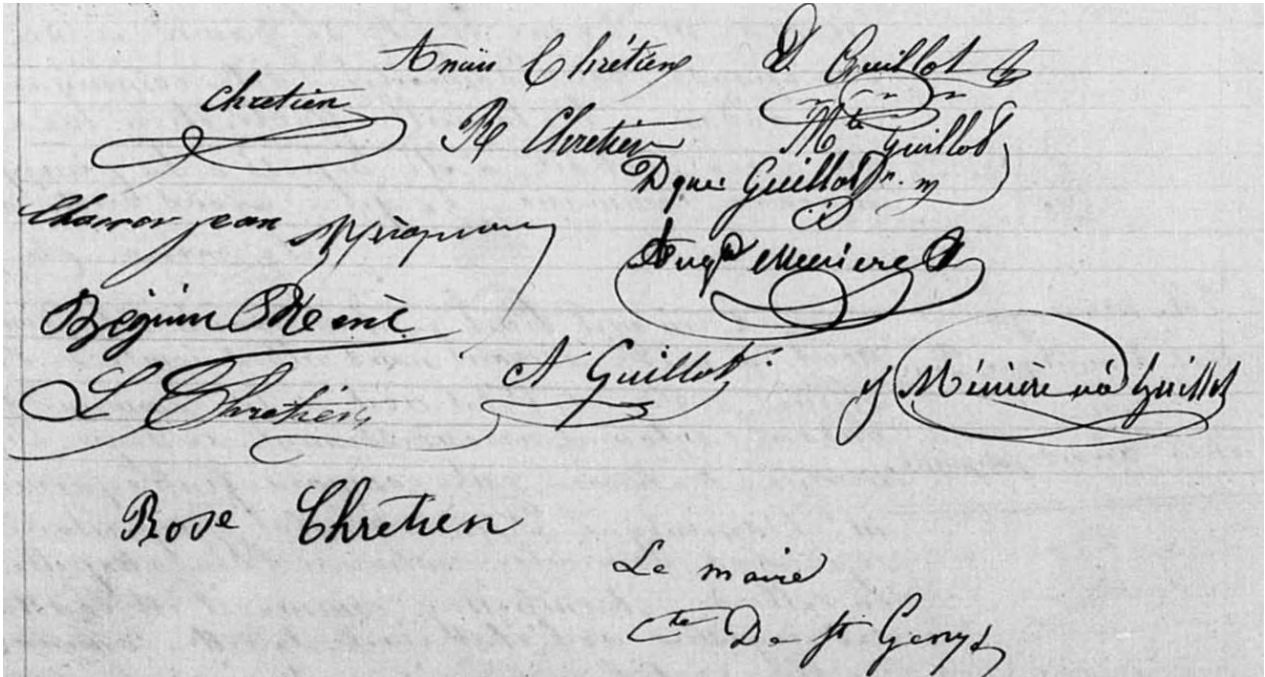 Anaïs Chrétien
V. Guillot
Chretien
R Chretien
Mte Guillot
Dque Guillot
Charron jean
Augte Meniere
Béguin René
L Chretien
A Guillot
Y Ménière née Guillot
Rose Chretien
Le maire
Cte De St Genys